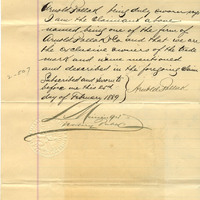 Arnold Pollak being duly sworn says
I am the claimant above
named, being one of the firm of
Arnold Pollak & Co and that we are
the exclusive owners of the trade
mark and name mentioned
and described in the foregoing claim
Subscribed and sworn to
before me this 25th
day of February 1889
Arnold Pollak